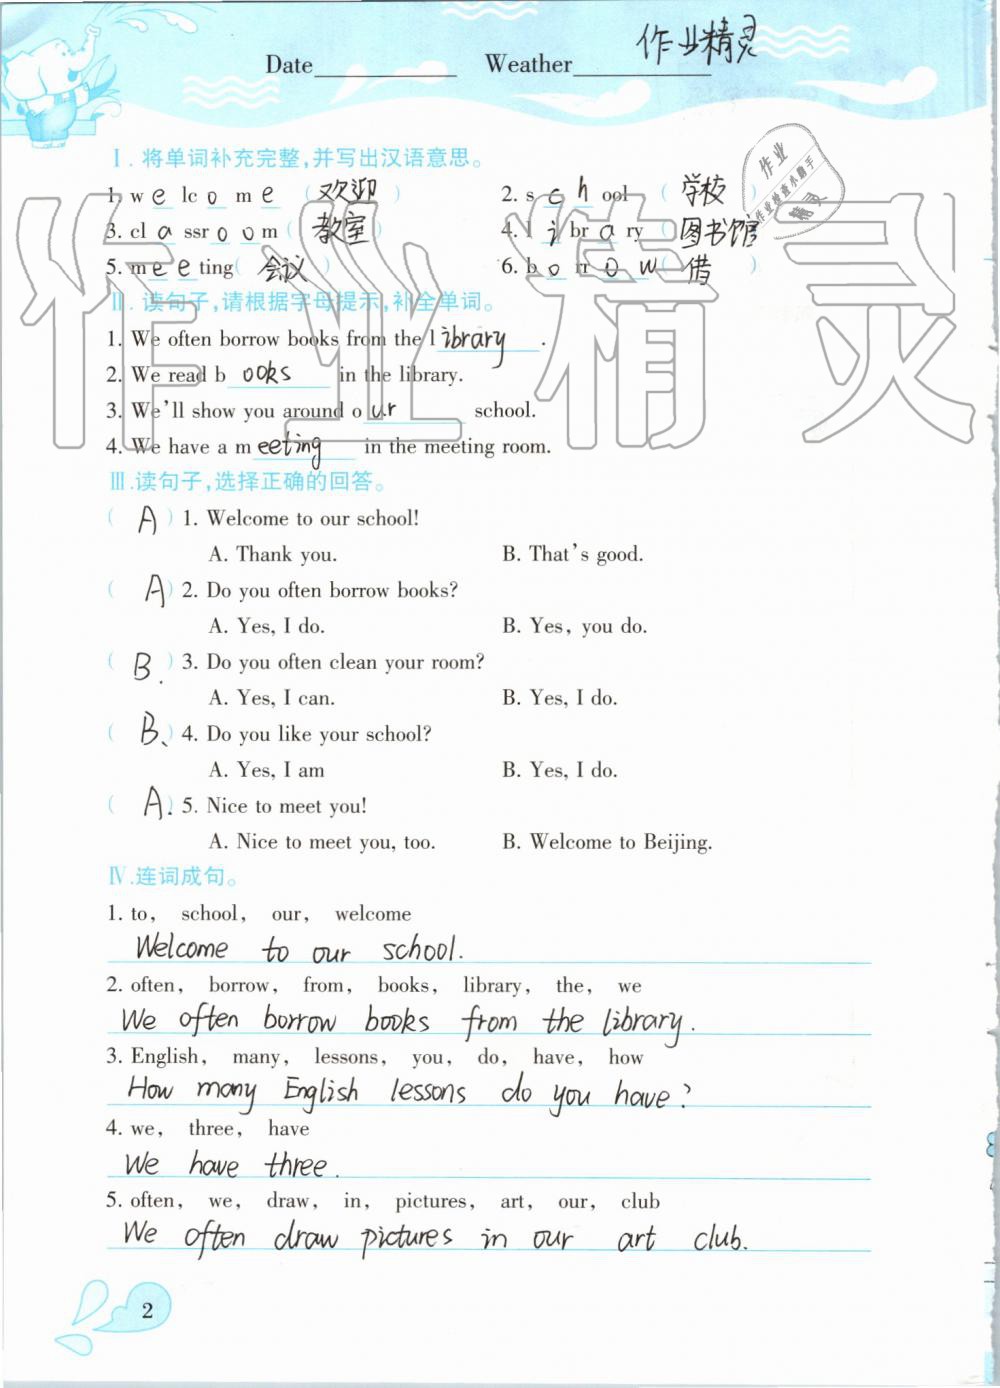 Date__________ Weather__________ 作业精灵
Ⅰ. 将单词补充完整,并写出汉语意思。
1. w e lc o m e ( 欢迎 ) 2. s c h ool ( 学校 )
3. cl a ssr o o m ( 教室 ) 4. l i br a ry ( 图书馆 )
5. m e e ting ( 会议 ) 6. b o rr o w ( 借 )
Ⅱ. 读句子,请根据字母提示,补全单词。
1. We often borrow books from the library.
2. We read books in the library.
3. We'll show you around our school.
4. We have a meeting in the meeting room.
Ⅲ.读句子,选择正确的回答。
( A ) 1. Welcome to our school!
A. Thank you. B. That's good.
( A ) 2. Do you often borrow books?
A. Yes, I do. B. Yes, you do.
( B. ) 3. Do you often clean your room?
A. Yes, I can. B. Yes, I do.
( B、 ) 4. Do you like your school?
A. Yes, I am B. Yes, I do.
( A. ) 5. Nice to meet you!
A. Nice to meet you, too. B. Welcome to Beijing.
Ⅳ.连词成句。
1. to, school, our, welcome
Welcome to our school.
2. often, borrow, from, books, library, the, we
We often borrow books from the library.
3. English, many, lessons, you, do, have, how
How many English lessons do you have?
4. we, three, have
We have three.
5. often, we, draw, in, pictures, art, our, club
We often draw pictures in our art club.
2
作业精灵
作业
作业检查小助手
精灵